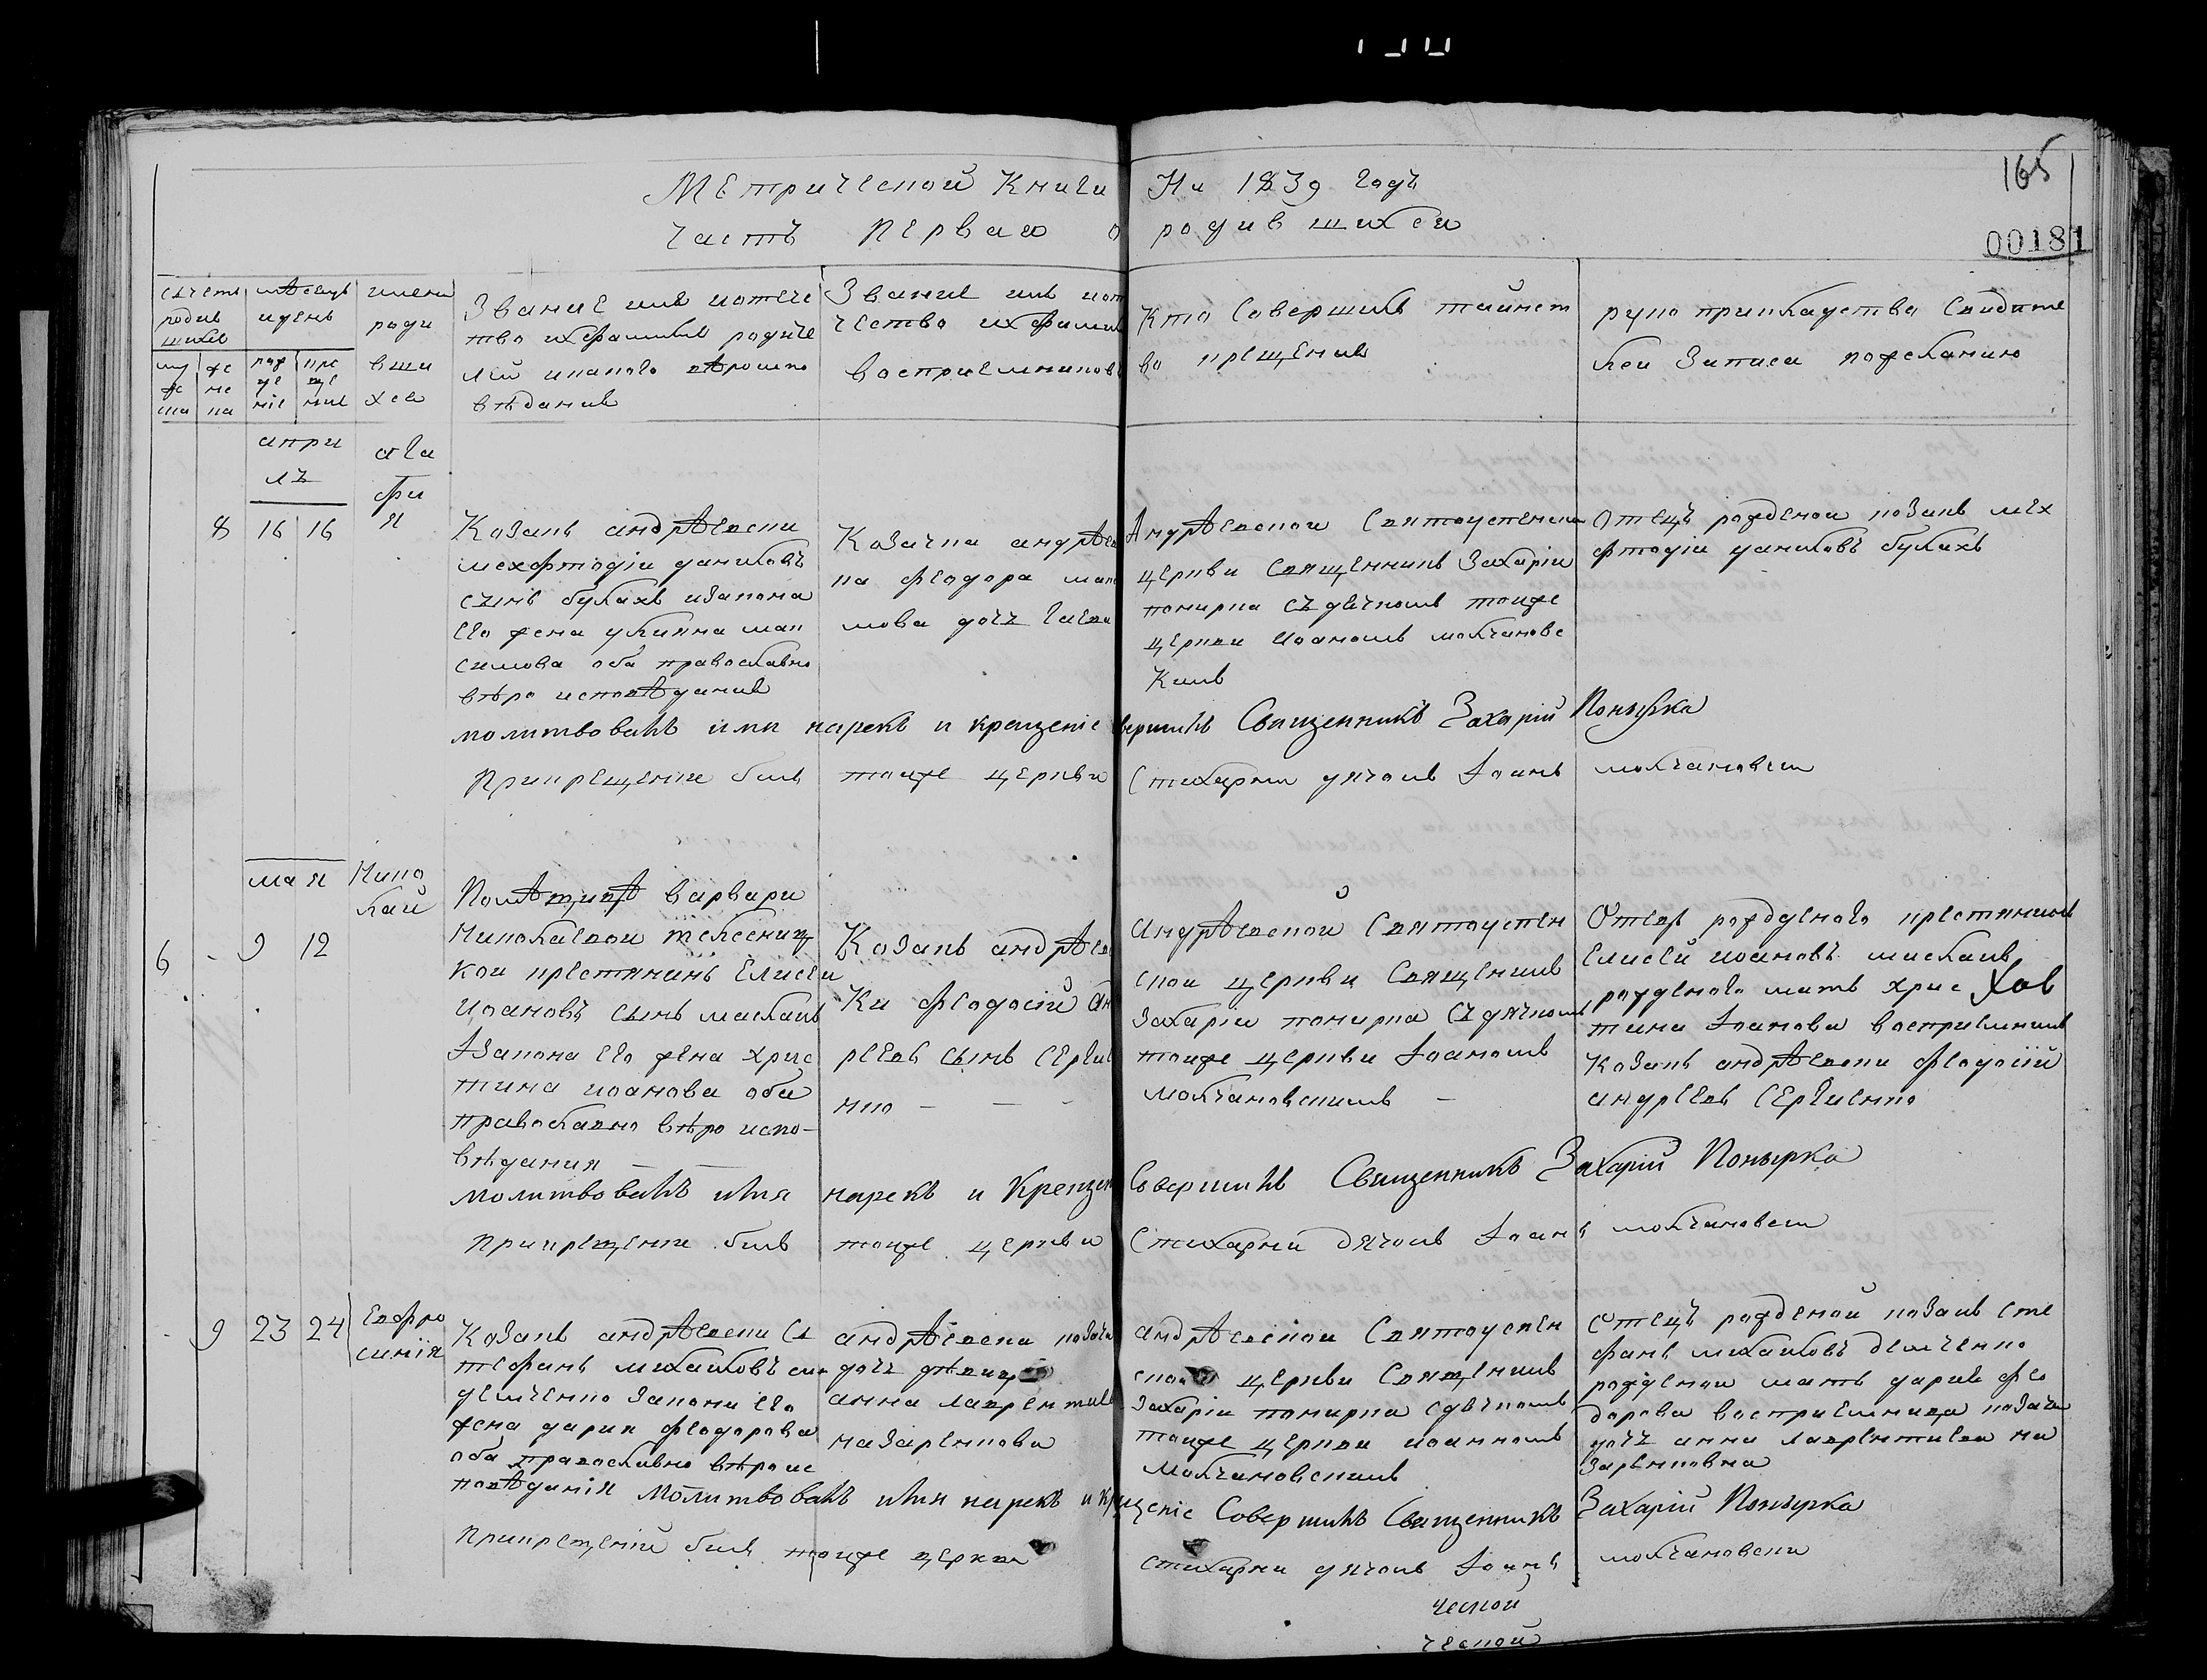 165
00181
Метрической Книги На 1839 годъ
часть первая о родившихся
счетъ родив шихся
мѣсецъ и день
имени роди вши хся
Звание имя иотече
тво ихфамилия родите
лей икапого вѣроиспо
вѣдания
Звание имя иот
чество ихфамил
восприемниковъ
Кто совершилъ таинст
во прещения
руко прикладство свидите
лей записи пожеланию
му же ска
же нс ка
рож де ніе
кре ще ние
апри
лъ
ага
фи
я
8 16 16
Козакъ андрѣевки
мехфтодіи даниловъ
сынъ булахъ изакона
его жена улияна мак
симова оба православно
вѣро исповѣдания
Козачка андрѣев
ка феодора мак
мова дочь гаева
Андрѣевской Святоуспенски
церкви священникъ Захаріи
понирка съ дячкомъ тоиже
церкви иоаномъ молчановс
кимъ
отецъ рожденои козакъ мех
фтодіи даниловъ булахъ
молитвовалъ имя нарекъ и крещеніе совершилъ Священникъ Захарій Понырка
Прикрещении билъ тоиже церкви стихарни дячокъ Іоанъ молчановски
мая
Нико
лай
6 - 9 12
Помѣщицѣ варвари
Николаевои телесниц
кои крестянинъ Елисеи
иоановъ сынъ маслакъ
Ізакона его жена хрис
тина иоанова оба
православно вѣро испо-
вѣдания
Козакъ андрѣев
Ки феодосій ан
реевъ сынъ сергие
нко
андрѣевской Святоуспен
скои церкви священикъ
Захаріи понирка съ дячкомъ
тоиже церкви Іоаномъ
молчановскимъ
Отецъ рожденого крестянинъ
Елисей иоановъ маслакъ
рожденого мать хрис
тина Іоанова восприемникъ
козакъ андрѣевки феодосій
андреевъ сергиенко
молитвовалъ имя нарекъ и Крещен Совершилъ Священникъ Захарій Понырка
Прикрещении билъ тоиже церкви стихарній дячокъ Іоанъ молчановски
- 9 23 24
Евфро
синія
Козакъ андрѣевки с
тефанъ михаиловъ син
демченко закони его
жена дария феодорова
оба православно вѣро ис
повѣданія
андрѣевки козачи
дочь дѣвица
анна лаврентиев
назаренкова
андрѣевской Святоуспен
ской церкви священикъ
Захаріи понирка сдячкомъ
тоиже церкви иоанномъ
молчановскимъ
отецъ рожденой козакъ сте
фанъ михаиловъ демченко
рожденои мать дария фео
дорова восприемница козачя
дочь анна лаврентиева на
заренковна
Молитвовалъ имя нарекъ и крещеніе Совершилъ Священникъ Захарій Понырка
Прикрещеній билъ тоиже церкви стихарни дячокъ Іоанъ молчановски
ческой
ческой